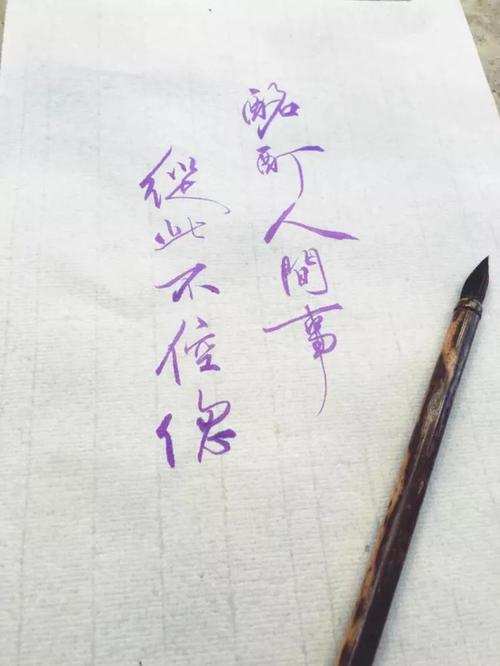 酩酊人間事
從此不倥偬